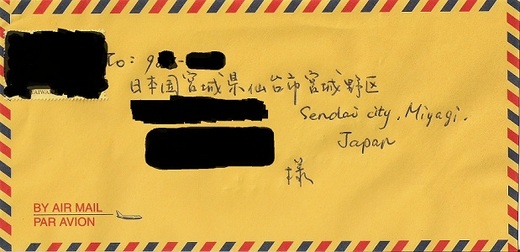 TAIWAN
To: 9
日本国宮城県仙台市宮城野区
Sendai city, Miyagi,
Japan
様
BY AIR MAIL
PAR AVION